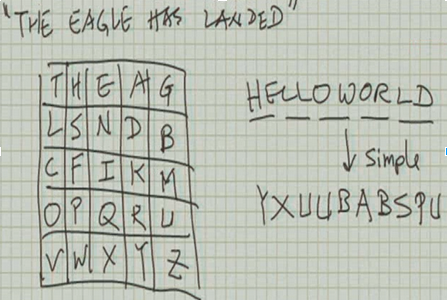 "THE EAGLE HAS LANDED"
T H E A G
L S N D B
C F I K M
O P Q R U
V W X Y Z
HELLOWORLD
↓ simple
YXUUBABSPU